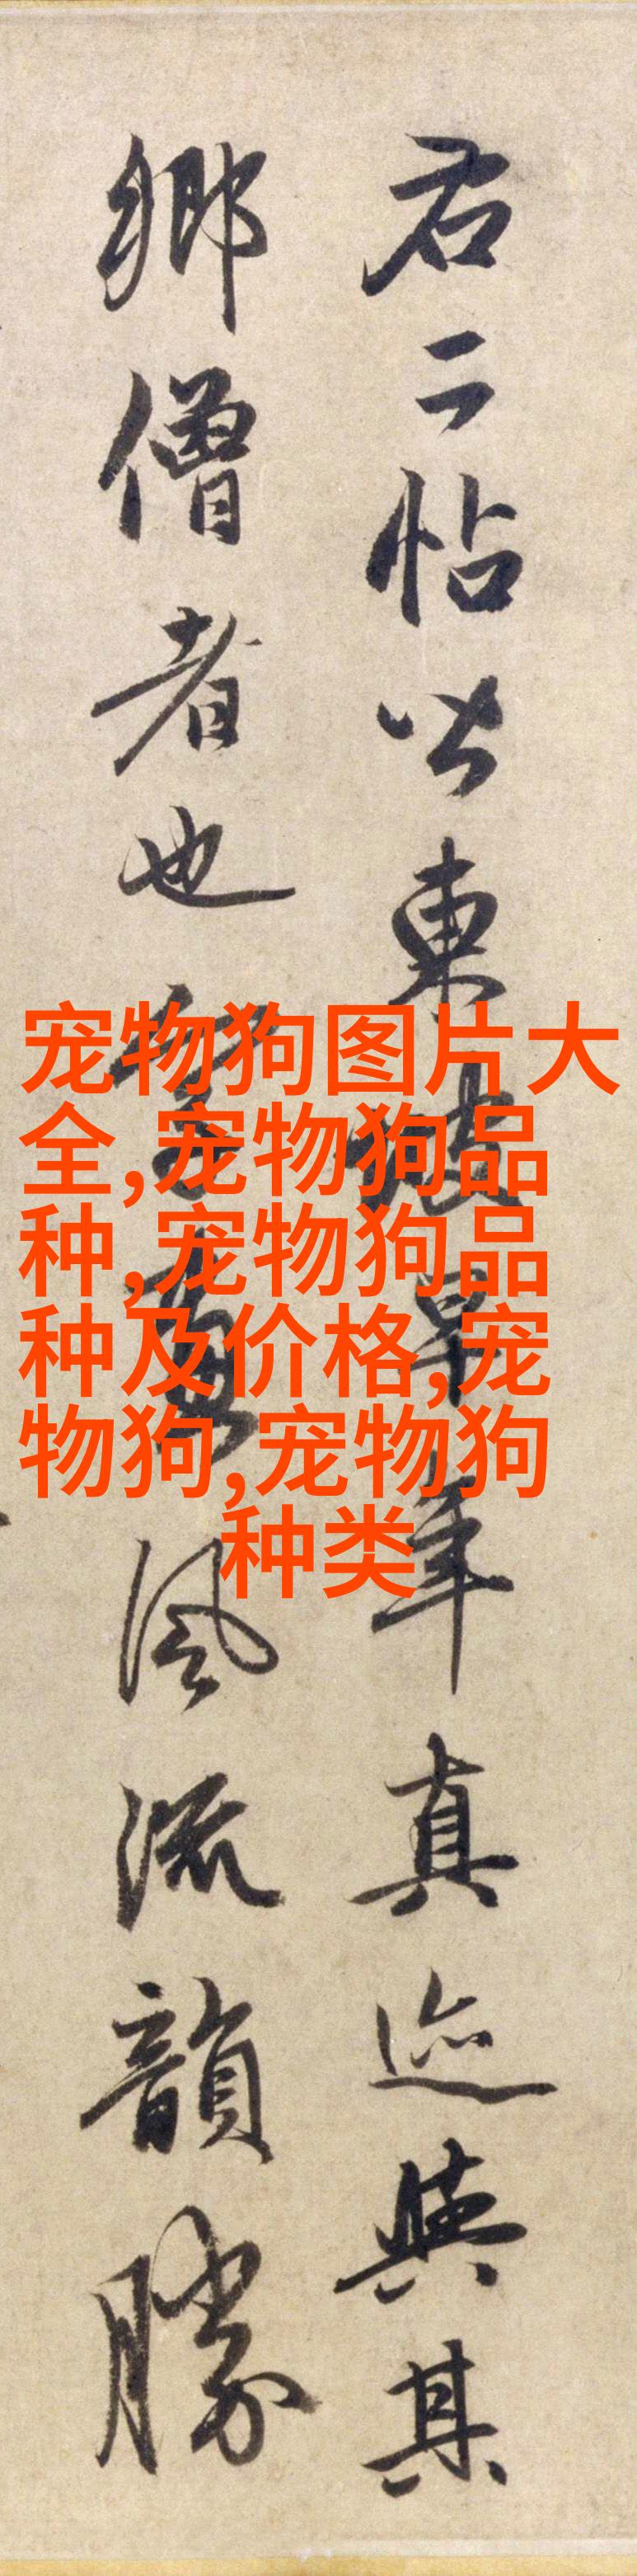 右二帖皆東坡早年真迹與其
鄉僧者也字畫風流韻勝
宠物狗图片大
全,宠物狗品
种,宠物狗品
种及价格,宠
物狗,宠物狗
种类